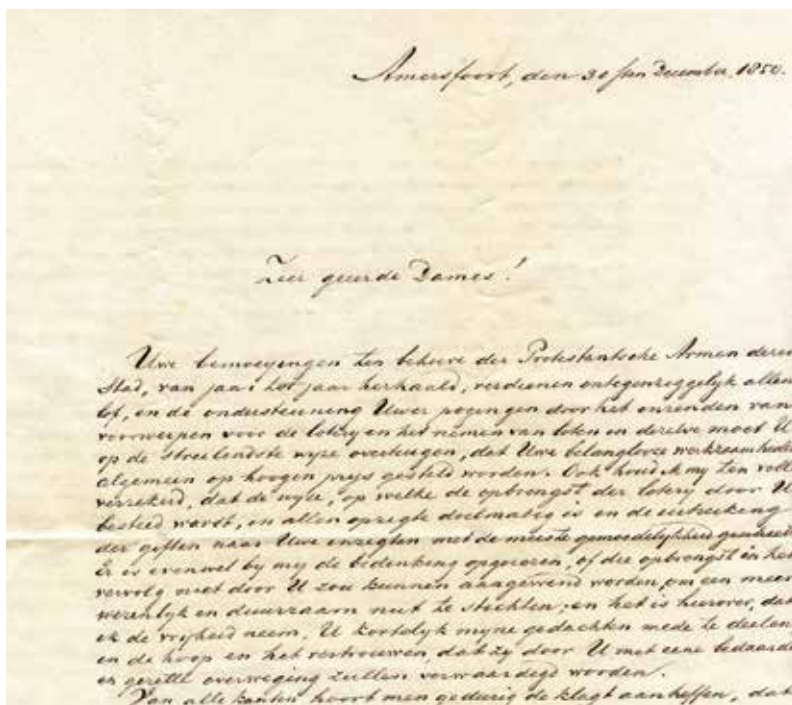 Amersfoort, den 30sten December, 1850.
Zeer geeerde Dames!
Uwe bemoeyingen ten behoeve der Protestantsche Armen dezer
Stad, van jaar tot jaar herhaald, verdienen ontegenzeggelyk allen
lof, en de ondersteuning Uwer pogingen door het inzenden van
voorwerpen voor de lotery en het nemen van loten in dezelve moet U
op de streelendste wyze overtuigen, dat Uwe belanglooze werkzaamheden
algemeen op hoogen prys gesteld worden. Ook houd ik my ten volle
verzekerd, dat de wyze, op welke de opbrengst der lotery door U
besteed wordt, in allen opzigte doelmatig is en de uitreiking
der giften naar Uwe inzigten met de meeste gemoedelykheid geschiedt.
Er is evenwel by my de bedenking opgerezen, of die opbrengst in het
vervolg niet door U zou kunnen aangewend worden, om een meer
wezenlyk en duurzaam nut te stichten; en het is hierover, dat
ik de vryheid neem, U kortelyk myne gedachten mede te deelen,
in de hoop en het vertrouwen, dat zy door U met eene bedaarde
en gezette overweging zullen verwaardigd worden.
Van alle kanten hoort men gedurig de klagt aanheffen, dat